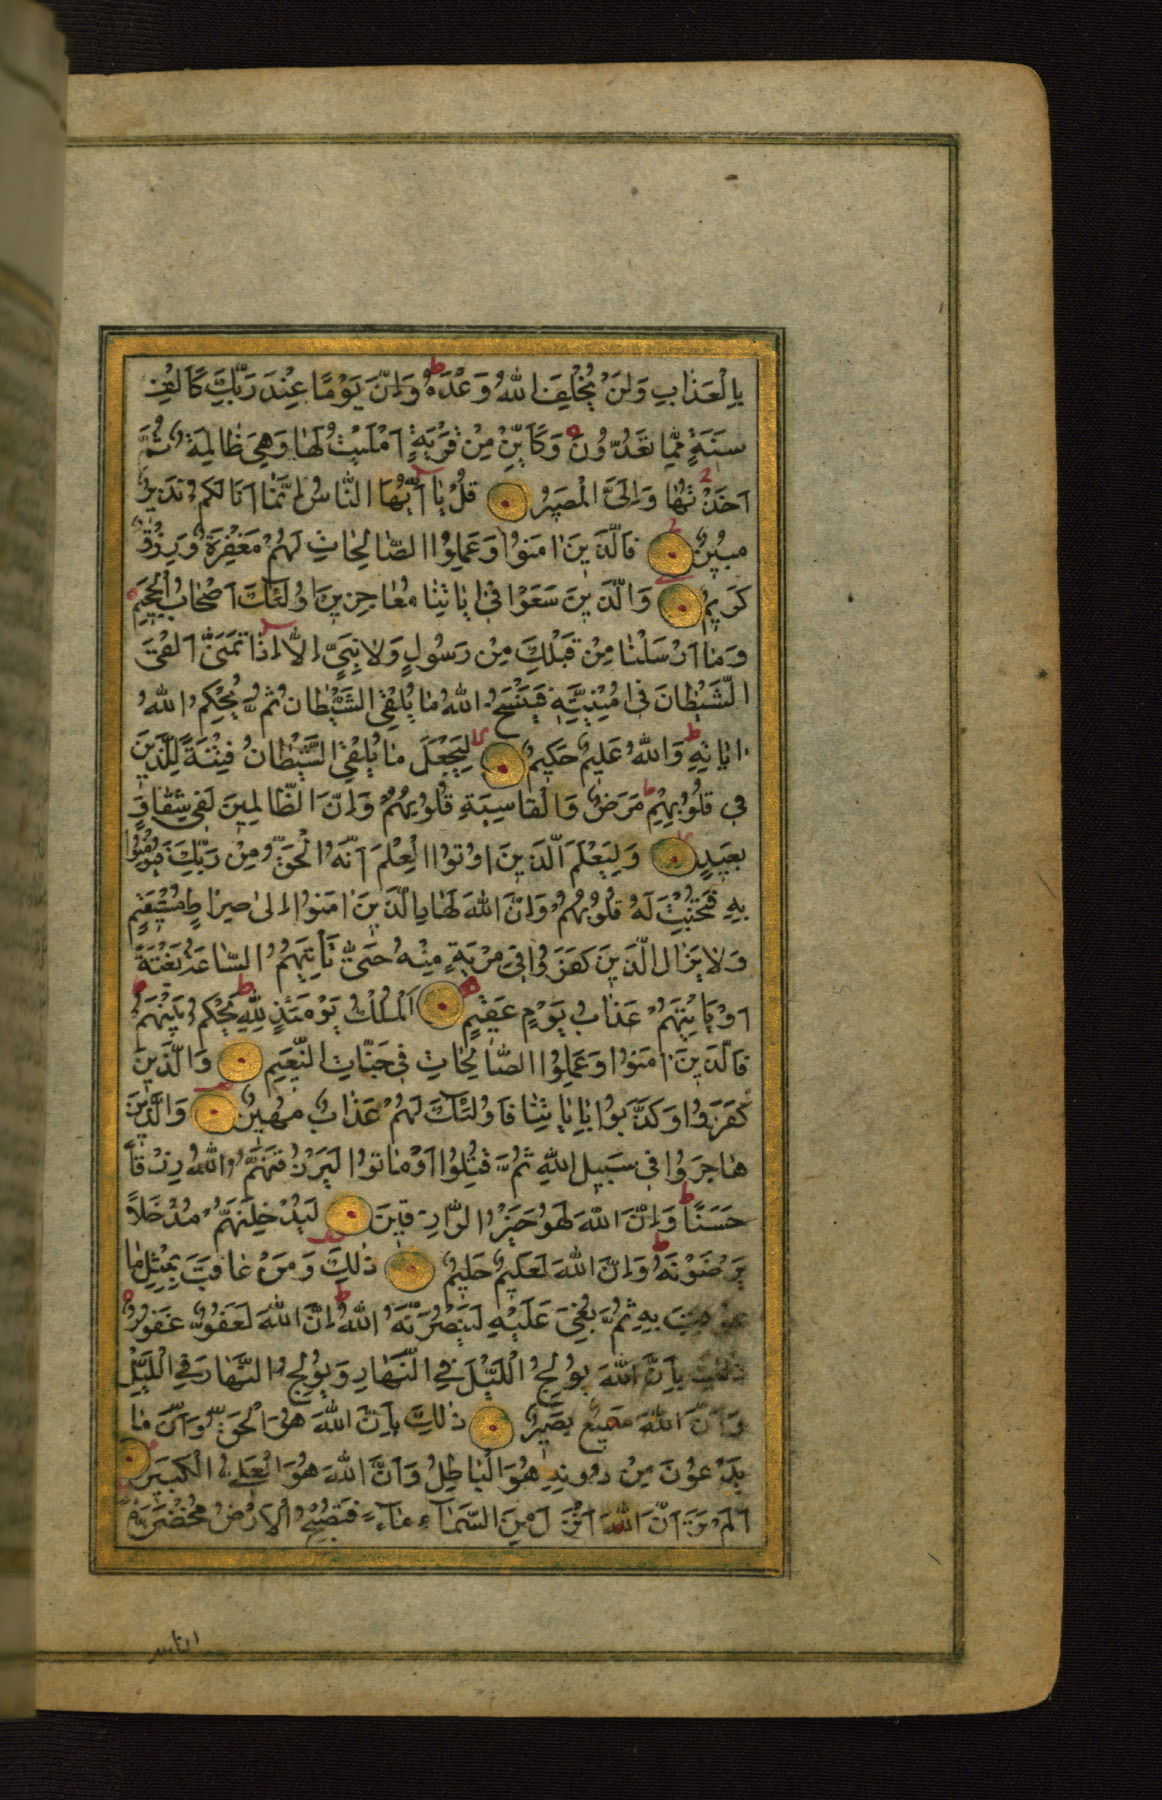 بِالْعَذَابِ وَلَنْ يُخْلِفَ اللّٰهُ وَعْدَهُ ط وَاِنَّ يَوْمًا عِنْدَ رَبِّكَ كَاَلْفِ
سَنَةٍ مِمَّا تَعُدُّونَ وَكَاَيِّنْ مِنْ قَرْيَةٍ اَمْلَيْتُ لَهَا وَهِيَ ظَالِمَةٌ ثُمَّ
اَخَذْتُهَا وَاِلَيَّ الْمَصِيرُ قُلْ يَا اَيُّهَا النَّاسُ اِنَّمَا اَنَا لَكُمْ نَذِيرٌ
مُبِينٌ فَالَّذِينَ اٰمَنُوا وَعَمِلُوا الصَّالِحَاتِ لَهُمْ مَغْفِرَةٌ وَرِزْقٌ
كَرِيمٌ وَالَّذِينَ سَعَوْا فِي اٰيَاتِنَا مُعَاجِزِينَ اُولٰئِكَ اَصْحَابُ الْجَحِيمِ
وَمَا اَرْسَلْنَا مِنْ قَبْلِكَ مِنْ رَسُولٍ وَلَا نَبِيٍّ اِلَّا اِذَا تَمَنَّى اَلْقَى
الشَّيْطَانُ فِي اُمْنِيَّتِهِ فَيَنْسَخُ اللّٰهُ مَا يُلْقِي الشَّيْطَانُ ثُمَّ يُحْكِمُ اللّٰهُ
اٰيَاتِهِ ط وَاللّٰهُ عَلِيمٌ حَكِيمٌ لا لِيَجْعَلَ مَا يُلْقِي الشَّيْطَانُ فِتْنَةً لِلَّذِينَ
فِي قُلُوبِهِمْ مَرَضٌ وَالْقَاسِيَةِ قُلُوبُهُمْ ط وَاِنَّ الظَّالِمِينَ لَفِي شِقَاقٍ
بَعِيدٍ لا وَلِيَعْلَمَ الَّذِينَ اُوتُوا الْعِلْمَ اَنَّهُ الْحَقُّ مِنْ رَبِّكَ فَيُؤْمِنُوا
بِهِ فَتُخْبِتَ لَهُ قُلُوبُهُمْ وَاِنَّ اللّٰهَ لَهَادِ الَّذِينَ اٰمَنُوا اِلٰى صِرَاطٍ مُسْتَقِيمٍ
وَلَا يَزَالُ الَّذِينَ كَفَرُوا فِي مِرْيَةٍ مِنْهُ حَتَّى تَأْتِيَهُمُ السَّاعَةُ بَغْتَةً
اَوْ يَأْتِيَهُمْ عَذَابُ يَوْمٍ عَقِيمٍ اَلْمُلْكُ يَوْمَئِذٍ لِلّٰهِ ط يَحْكُمُ بَيْنَهُمْ
فَالَّذِينَ اٰمَنُوا وَعَمِلُوا الصَّالِحَاتِ فِي جَنَّاتِ النَّعِيمِ وَالَّذِينَ
كَفَرُوا وَكَذَّبُوا بِاٰيَاتِنَا فَاُولٰئِكَ لَهُمْ عَذَابٌ مُهِينٌ وَالَّذِينَ
هَاجَرُوا فِي سَبِيلِ اللّٰهِ ثُمَّ قُتِلُوا اَوْ مَاتُوا لَيَرْزُقَنَّهُمُ اللّٰهُ رِزْقًا
حَسَنًا ط وَاِنَّ اللّٰهَ لَهُوَ خَيْرُ الرَّازِقِينَ لَيُدْخِلَنَّهُمْ مُدْخَلًا
يَرْضَوْنَهُ ط وَاِنَّ اللّٰهَ لَعَلِيمٌ حَلِيمٌ ذٰلِكَ وَمَنْ عَاقَبَ بِمِثْلِ مَا
عُوقِبَ بِهِ ثُمَّ بُغِيَ عَلَيْهِ لَيَنْصُرَنَّهُ اللّٰهُ ط اِنَّ اللّٰهَ لَعَفُوٌّ غَفُورٌ
ذٰلِكَ بِاَنَّ اللّٰهَ يُولِجُ اللَّيْلَ فِي النَّهَارِ وَيُولِجُ النَّهَارَ فِي اللَّيْلِ
وَاَنَّ اللّٰهَ سَمِيعٌ بَصِيرٌ ذٰلِكَ بِاَنَّ اللّٰهَ هُوَ الْحَقُّ وَاَنَّ مَا
يَدْعُونَ مِنْ دُونِهِ هُوَ الْبَاطِلُ وَاَنَّ اللّٰهَ هُوَ الْعَلِيُّ الْكَبِيرُ
اَلَمْ تَرَ اَنَّ اللّٰهَ اَنْزَلَ مِنَ السَّمَاءِ مَاءً فَتُصْبِحُ الْاَرْضُ مُخْضَرَّةً